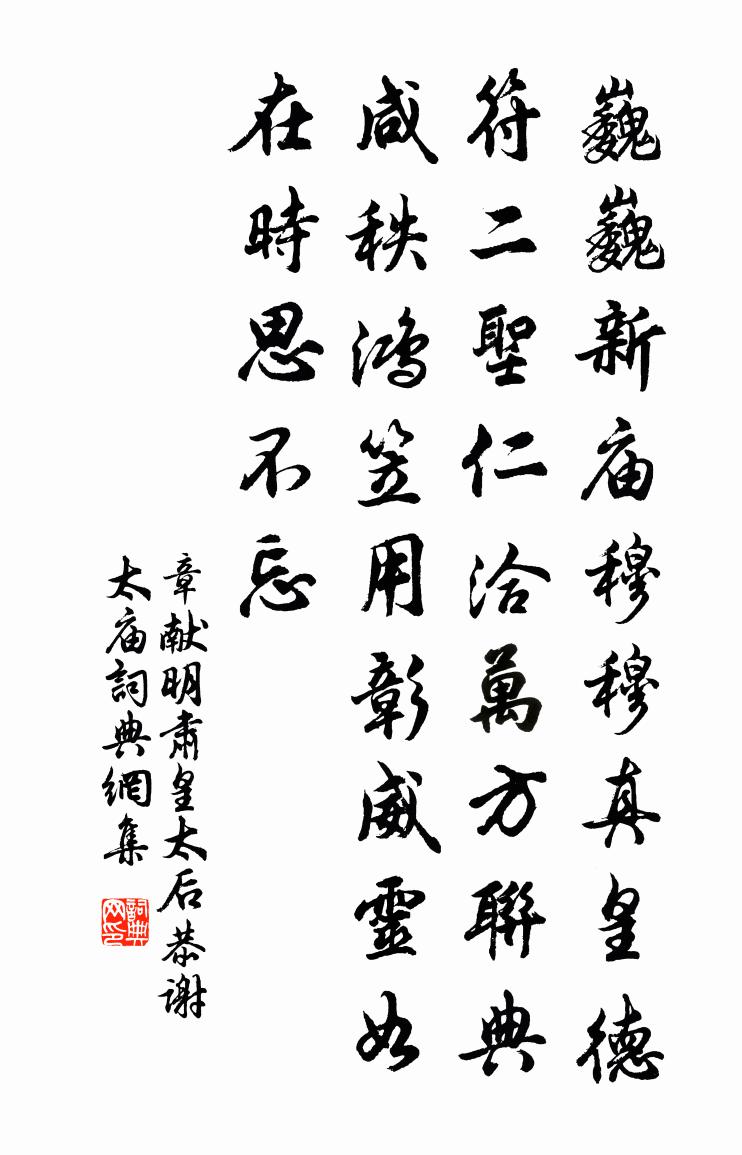 巍巍新庙穆穆真皇德
符二聖仁洽萬方聯典
咸秩鴻笠用彰威靈如
在時思不忘
章献明肅皇太后恭謝
太庙詞典網集
詞典网印